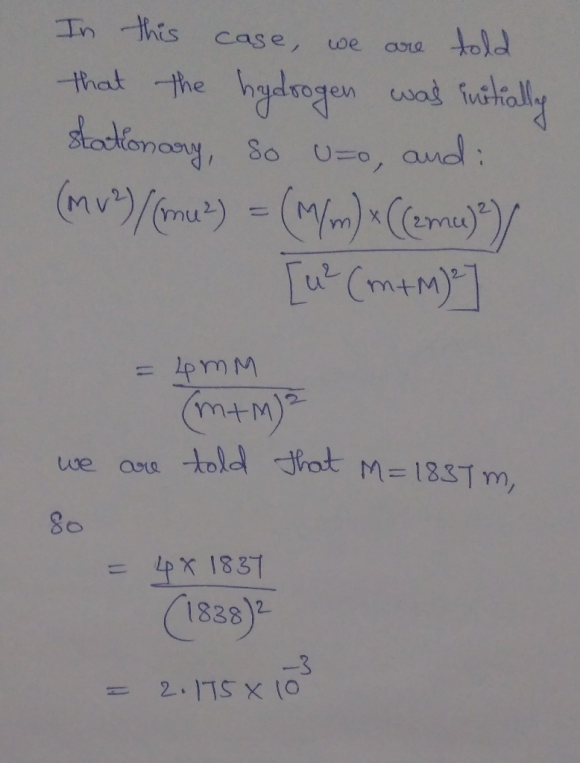 In this case, we are told
that the hydrogen was initially
stationary, so U=0, and:
(MV²)/(mu²) = (M/m)×((2mu)²)/
[u²(m+M)²]
= 4mM
(m+M)²
we are told that M=1837m,
so
= 4×1837
(1838)²
= 2.175×10⁻³